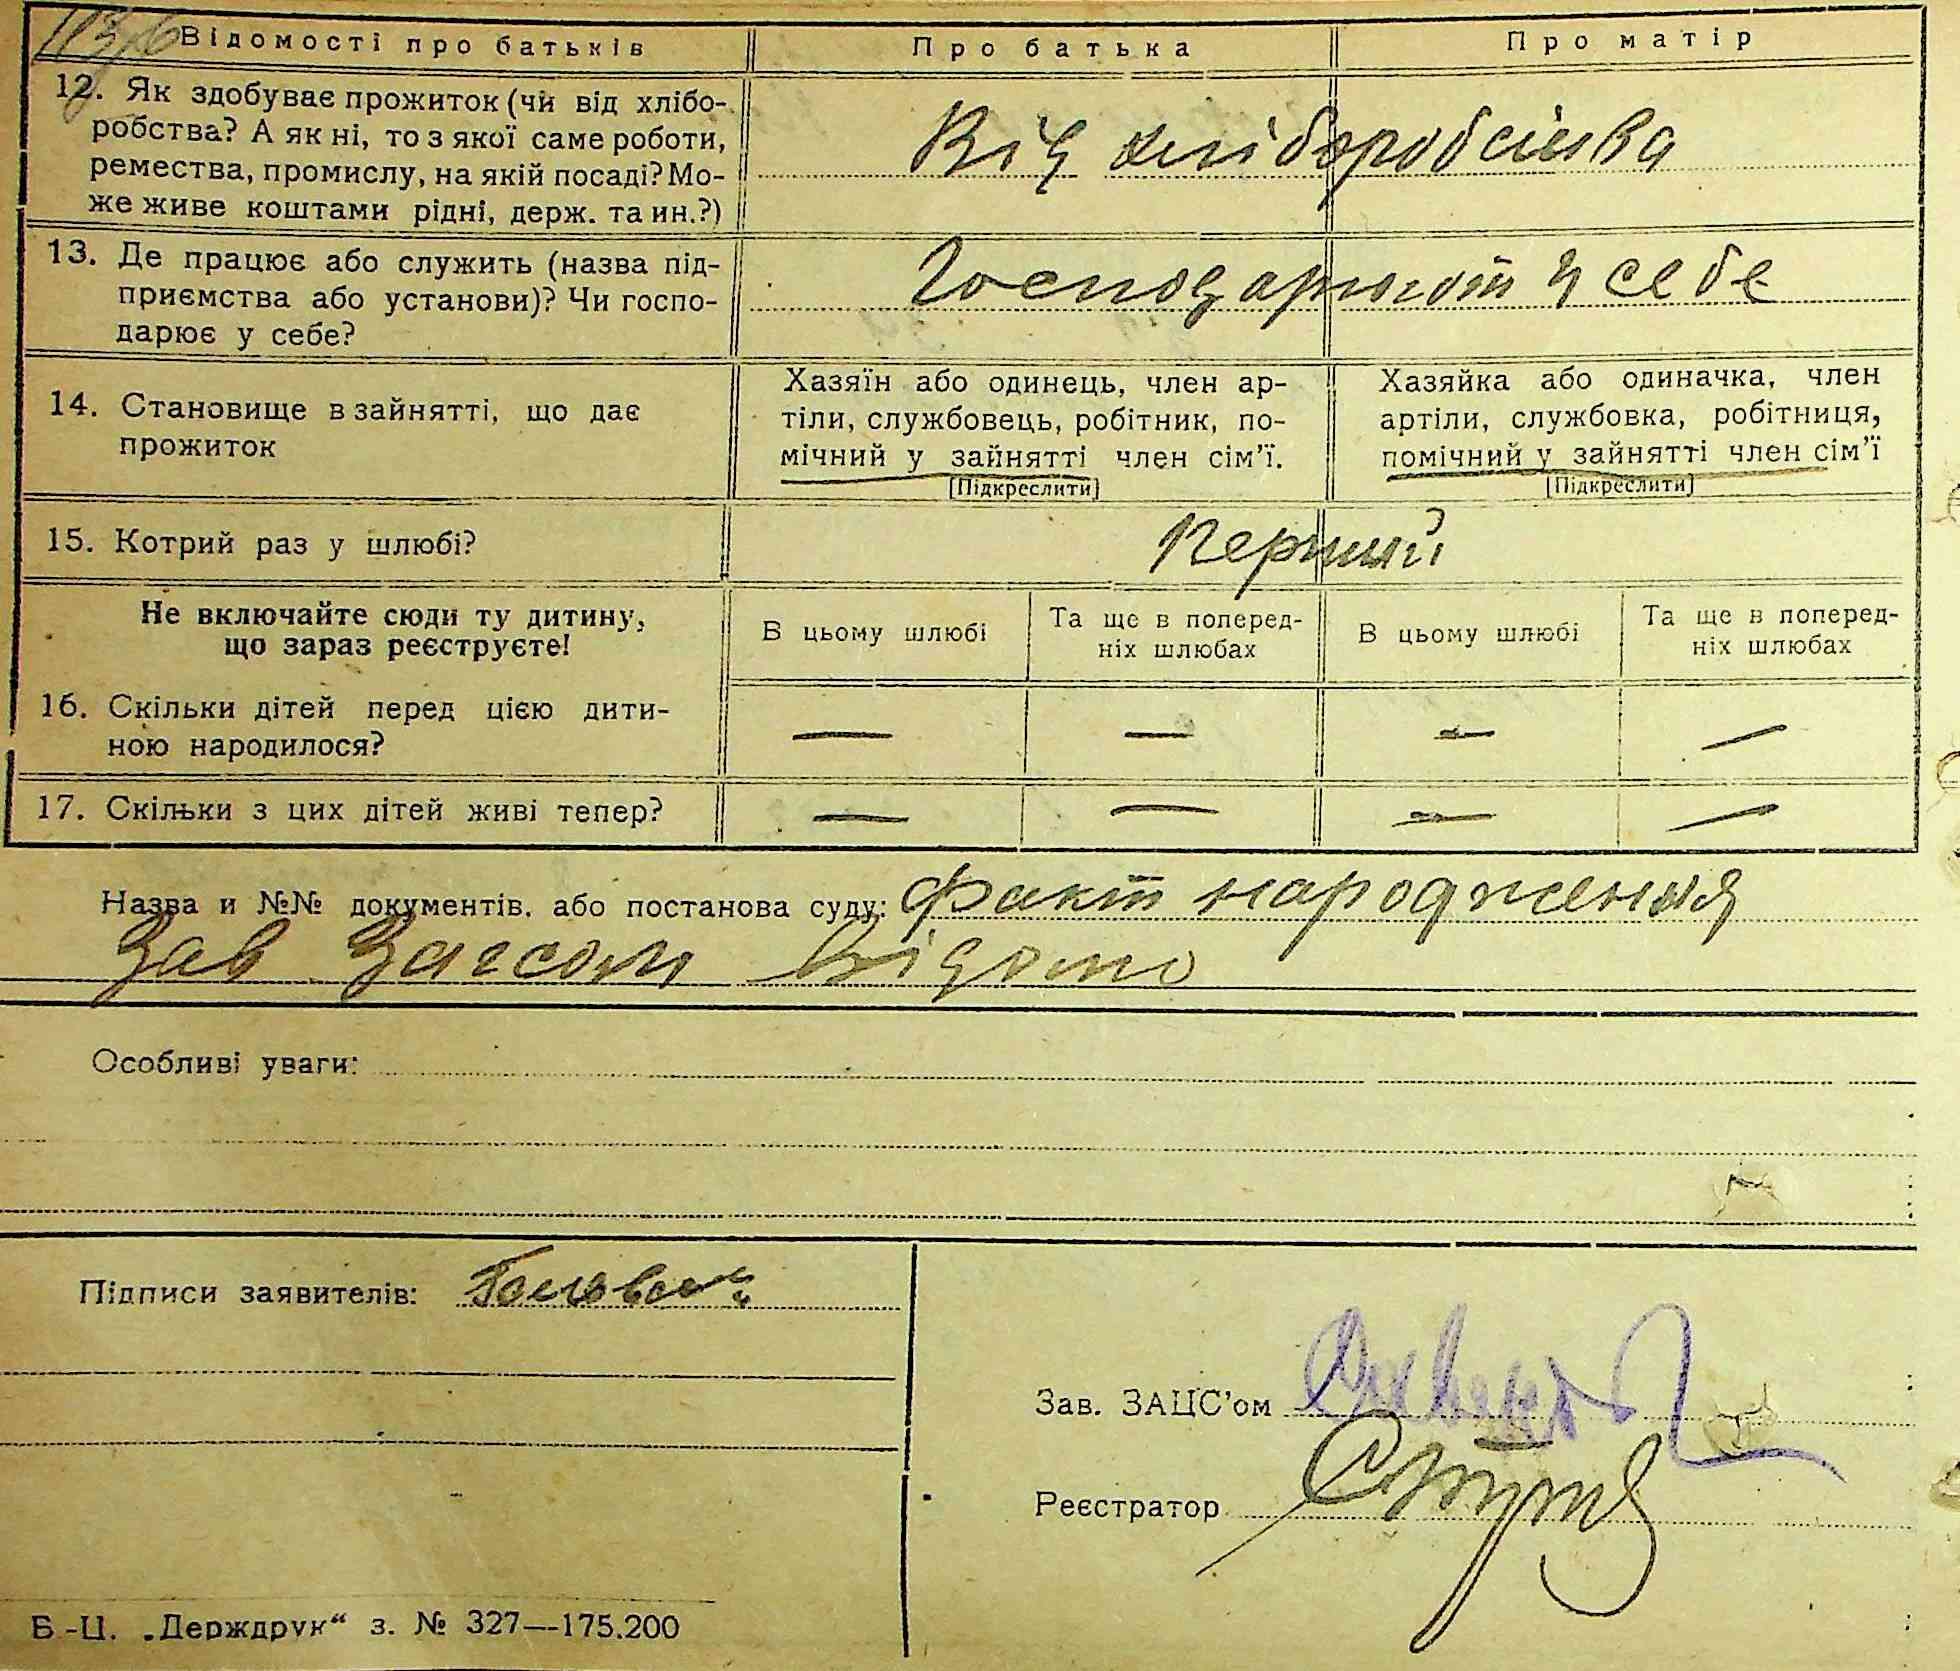 Відомості про батьків
Про батька
Про матір
12. Як здобуває прожиток (чи від хлібо-
робства? А як ні, то з якої саме роботи,
ремества, промислу, на якій посаді? Мо-
же живе коштами рідні, держ. та ин.?)
Від хліборобства
13. Де працює або служить (назва під-
приємства або установи)? Чи госпо-
дарює у себе?
Господарюют у себе
14. Становище в зайнятті, що дає
прожиток
Хазяїн або одинець, член ар-
тіли, службовець, робітник, по-
мічний у зайнятті член сім'ї.
[Підкреслити]
Хазяйка або одиначка, член
артіли, службовка, робітниця,
помічний у зайнятті член сім'ї
[Підкреслити]
15. Котрий раз у шлюбі?
Перший
Не включайте сюди ту дитину,
що зараз реєструєте!
В цьому шлюбі
Та ще в поперед-
ніх шлюбах
В цьому шлюбі
Та ще в поперед-
ніх шлюбах
16. Скільки дітей перед цією дити-
ною народилося?
— — — —
17. Скільки з цих дітей живі тепер?
— — — —
Назва и №№ документів. або постанова суду: Факт народження
Зав Загсом відомо
Особливі уваги:
Підписи заявителів:
Зав. ЗАЦС'ом
Реєстратор
Б.-Ц. „Держдрук“ з. № 327—175.200